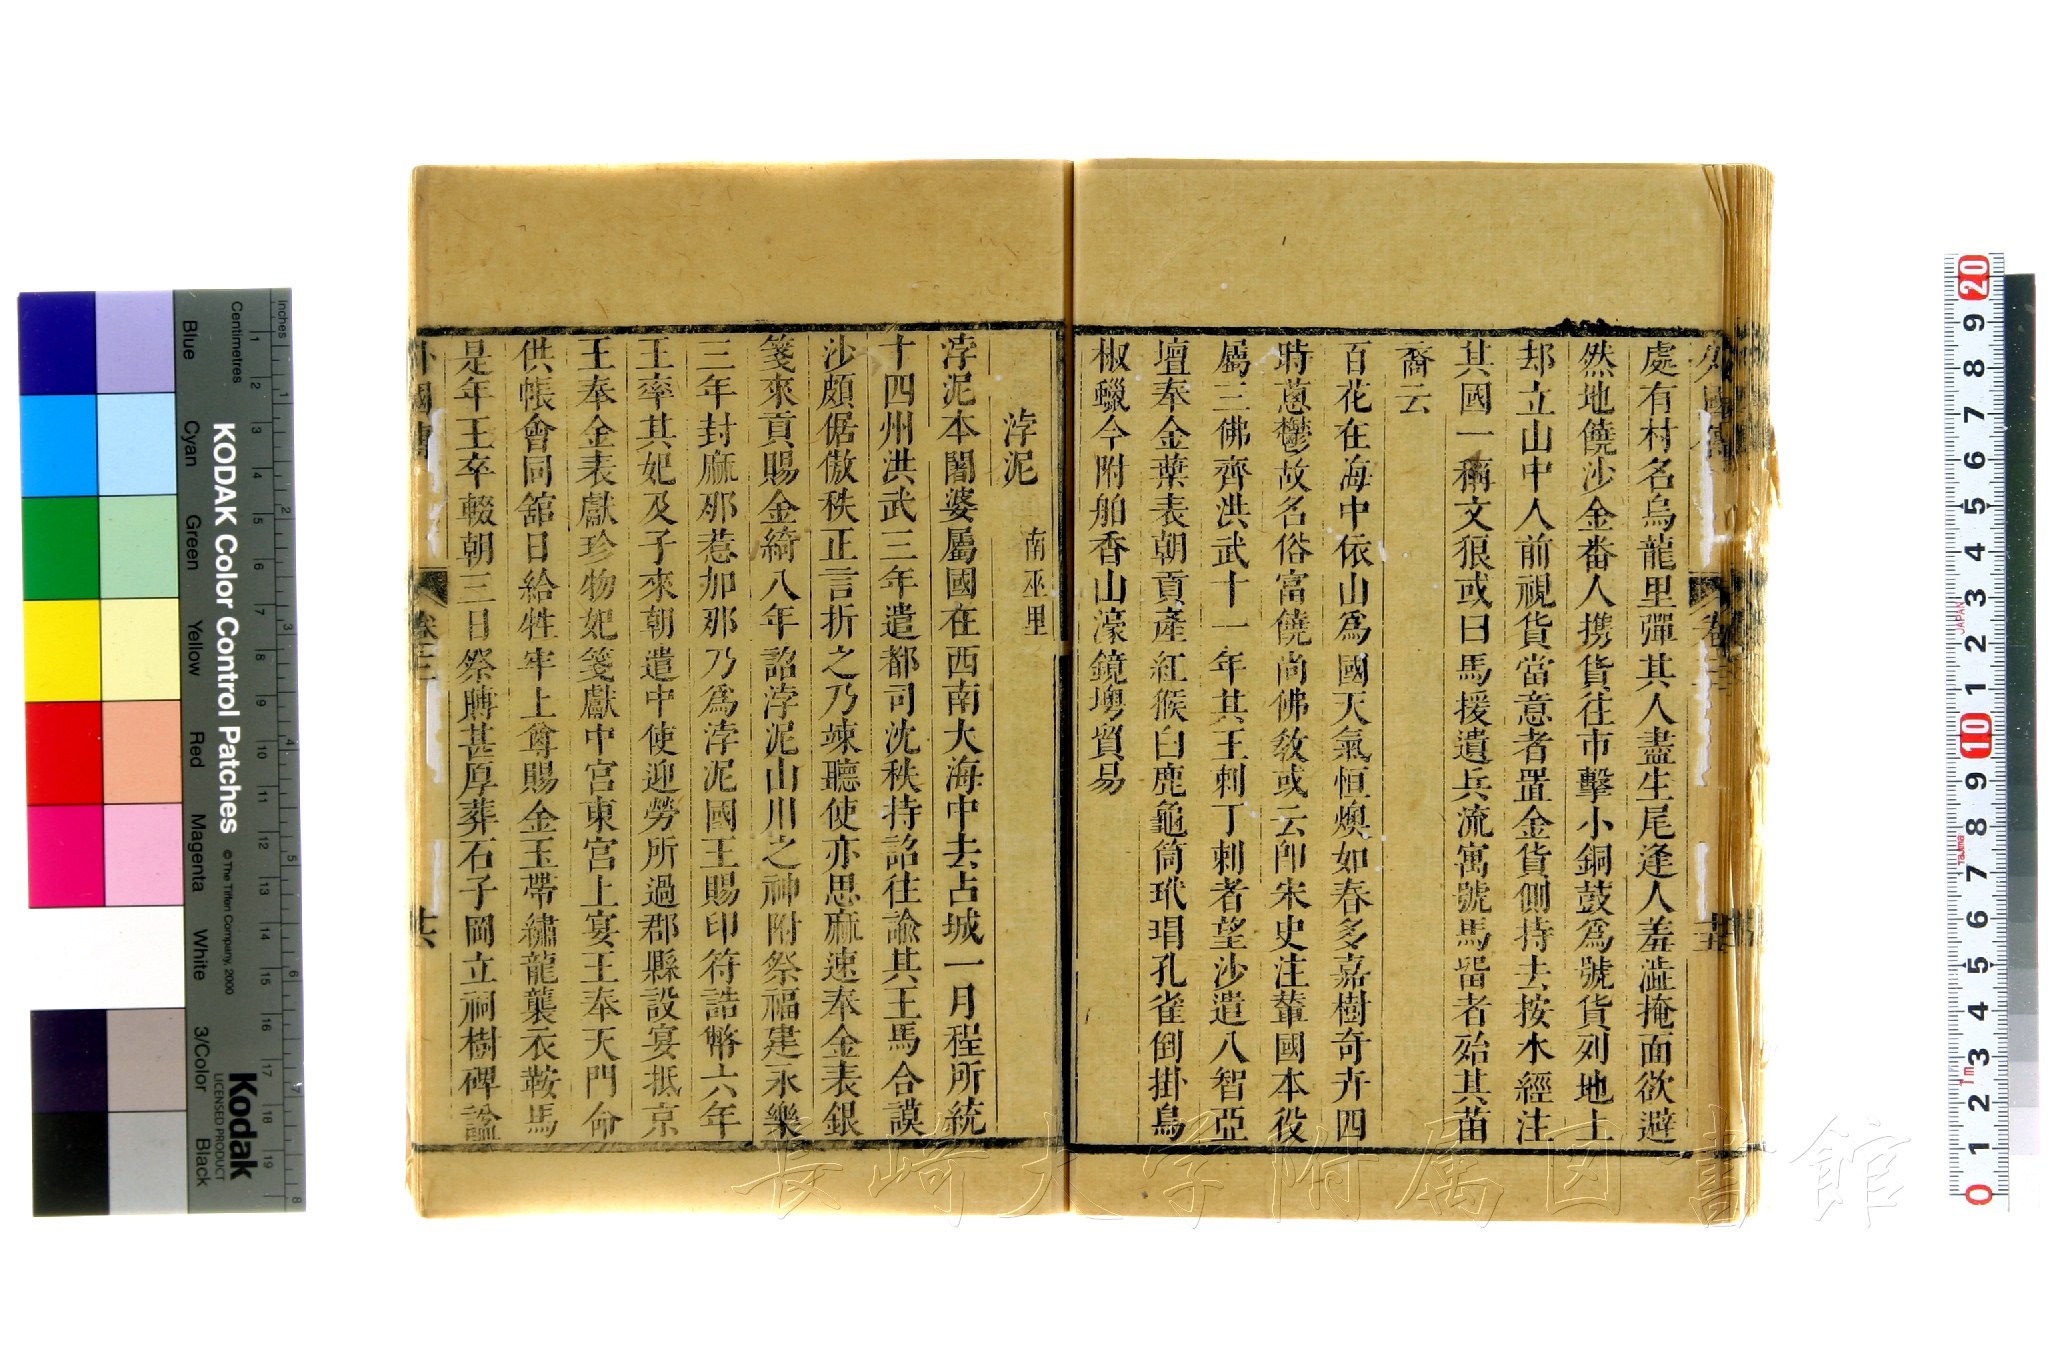 處有村名烏龍里彈其人盡生尾逢人羞澁掩面欲避
然地饒沙金番人携貨往市擊小銅鼓爲號貨列地上
却立山中人前視貨當意者置金貨側持去按水經注
其國一稱文狼或曰馬援遺兵流寓號馬畱者殆其苗
裔云
百花在海中依山爲國天氣恒燠如春多嘉樹奇卉四
時蔥鬱故名俗富饒尚佛敎或云卽宋史注輦國本役
屬三佛齊洪武十一年其王剌丁剌者望沙遣八智亞
壇奉金葉表朝貢產紅猴白鹿龜筒玳瑁孔雀倒掛鳥
椒蠟今附舶香山濠鏡墺貿易
浡泥 南巫里
浡泥本闍婆屬國在西南大海中去占城一月程所統
十四州洪武三年遣都司沈秩持詔往諭其王馬合謨
沙頗倨傲秩正言折之乃竦聽使亦思麻速奉金表銀
箋來貢賜金綺八年詔浡泥山川之神附祭福建永樂
三年封麻那惹加那乃爲浡泥國王賜印符誥幣六年
王率其妃及子來朝遣中使迎勞所過郡縣設宴抵京
王奉金表獻珍物妃箋獻中宮東宮上宴王奉天門命
供帳會同舘日給牲牢上尊賜金玉帶繡龍襲衣鞍馬
是年王卒輟朝三日祭賻甚厚葬石子岡立祠樹碑諡
外國傳
卷三
共
KODAK Color Control Patches
© The Tiffen Company, 2000
Kodak
LICENSED PRODUCT
Centimetres
inches
Blue
Cyan
Green
Yellow
Red
Magenta
White
3/Color
Black
JAPAN
長崎大学附属図書館